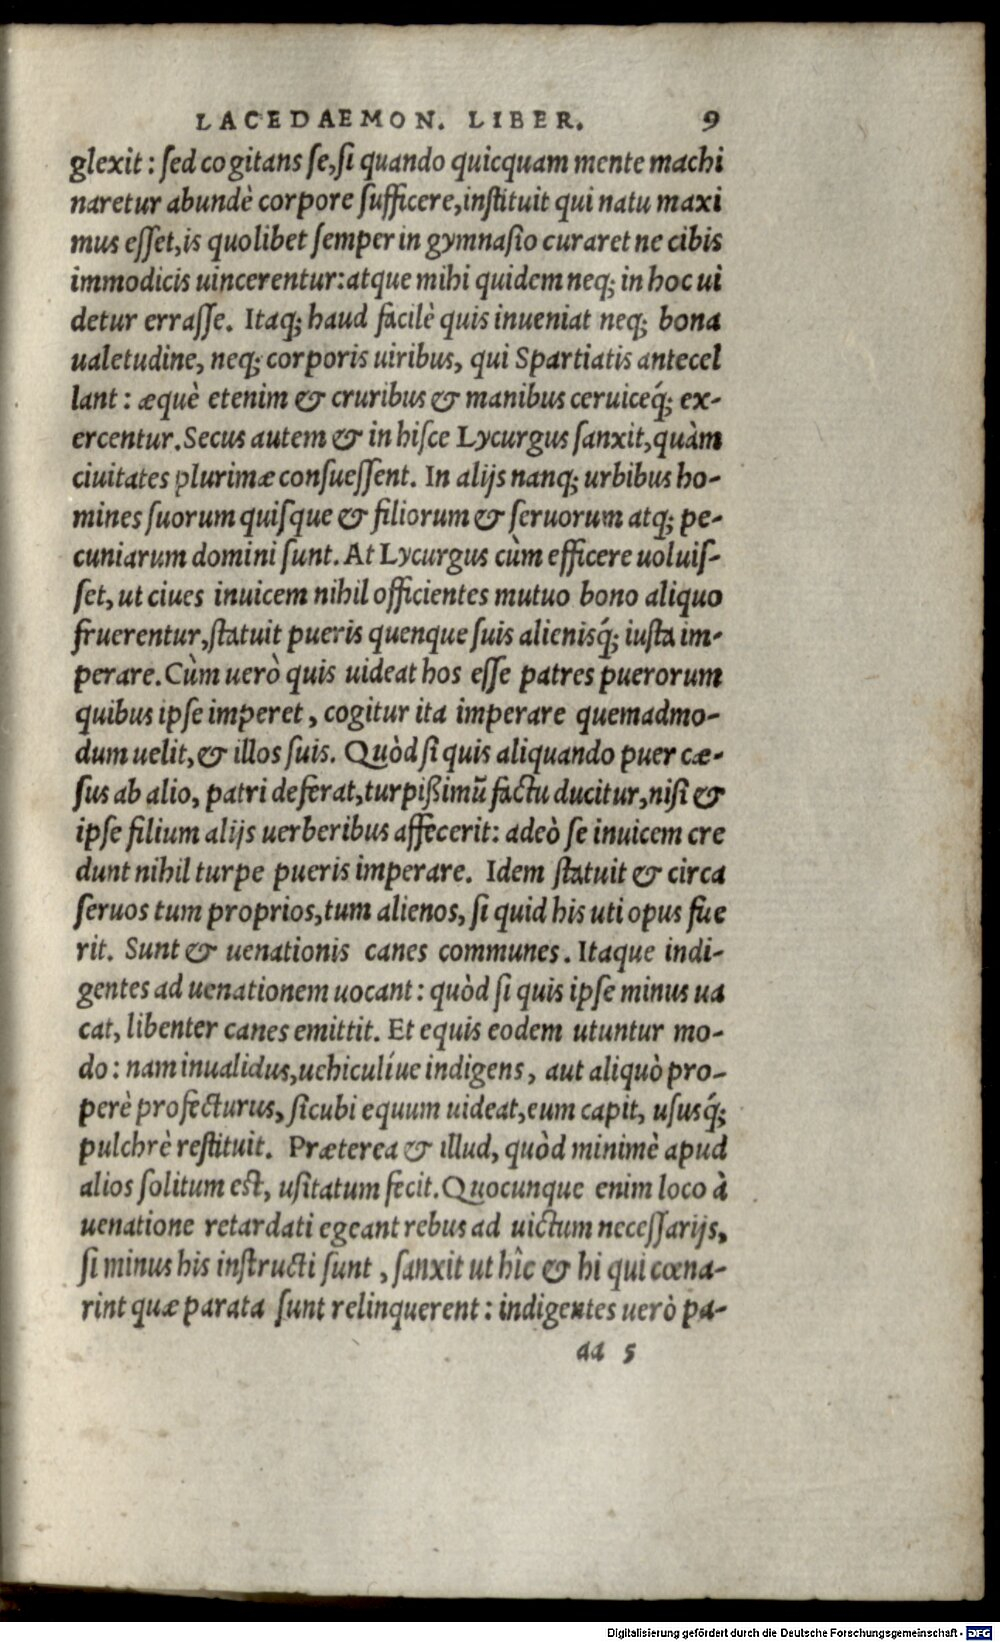 LACEDAEMON. LIBER. 9
glexit: sed cogitans se, si quando quicquam mente machi
naretur abundè corpore sufficere, instituit qui natu maxi
mus esset, is quolibet semper in gymnasio curaret ne cibis
immodicis uincerentur: atque mihi quidem neq; in hoc ui
detur errasse. Itaq; haud facilè quis inueniat neq; bona
ualetudine, neq; corporis uiribus, qui Spartiatis antecel
lant: æquè etenim & cruribus & manibus ceruiceq́; ex-
ercentur. Secus autem & in hisce Lycurgus sanxit, quàm
ciuitates plurimæ consuessent. In alijs nanq; urbibus ho-
mines suorum quisque & filiorum & seruorum atq; pe-
cuniarum domini sunt. At Lycurgus cùm efficere uoluis-
set, ut ciues inuicem nihil officientes mutuo bono aliquo
fruerentur, statuit pueris quenque suis alienisq́; iusta im-
perare. Cùm uerò quis uideat hos esse patres puerorum
quibus ipse imperet, cogitur ita imperare quemadmo-
dum uelit, & illos suis. Quòd si quis aliquando puer cæ-
sus ab alio, patri deferat, turpißimũ factu ducitur, nisi &
ipse filium alijs uerberibus affecerit: adeò se inuicem cre
dunt nihil turpe pueris imperare. Idem statuit & circa
seruos tum proprios, tum alienos, si quid his uti opus fue
rit. Sunt & uenationis canes communes. Itaque indi-
gentes ad uenationem uocant: quòd si quis ipse minus ua
cat, libenter canes emittit. Et equis eodem utuntur mo-
do: nam inualidus, uehiculíue indigens, aut aliquò pro-
perè profecturus, sicubi equum uideat, eum capit, ususq́;
pulchrè restituit. Præterea & illud, quòd minimè apud
alios solitum est, usitatum fecit. Quocunque enim loco à
uenatione retardati egeant rebus ad uictum necessarijs,
si minus his instructi sunt, sanxit ut hîc & hi qui cœna-
rint quæ parata sunt relinquerent: indigentes uerò pa-
aa 5
Digitalisierung gefördert durch die Deutsche Forschungsgemeinschaft - DFG